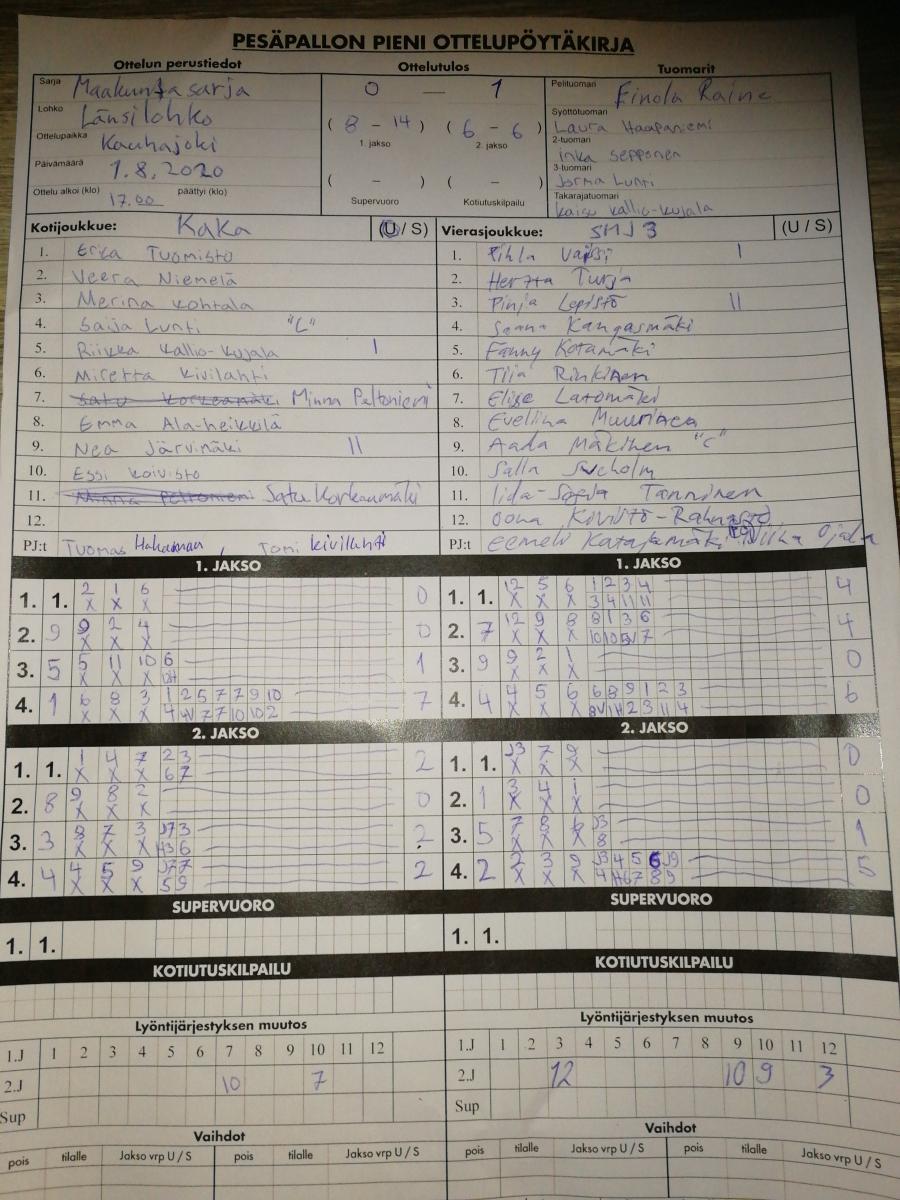 PESÄPALLON PIENI OTTELUPÖYTÄKIRJA
Ottelun perustiedot Ottelutulos Tuomarit
Sarja Maakuntasarja
Lohko Länsilohko
Ottelupaikka Kauhajoki
Päivämäärä 1.8.2020
Ottelu alkoi (klo) 17.00 päättyi (klo)
0 — 1
( 8 - 14 ) ( 6 - 6 )
1. jakso 2. jakso
( - ) ( - )
Supervuoro Kotiutuskilpailu
Pelituomari Raine
Syöttötuomari Laura Haapaniemi
2-tuomari inka Sepponen
3-tuomari Jorma Lunti
Takarajatuomari kaisu kallio-kujala
Kotijoukkue: Kaka (U / S)
1. Erika Tuomisto
2. Veera Niemelä
3. Merina kohtala
4. Saija Lunti "C"
5. Riikka kallio-kujala I
6. Miretta kivilahti
7. Minna Peltoniemi
8. Emma Ala-heikkilä
9. Nea Järvinäki II
10. Essi koivisto
11. Satu Korkeamäki
12.
PJ:t Tuomas , Toni kivilahti
Vierasjoukkue: SMJ 3 (U / S)
1. Pihla I
2. Hertta Turja
3. Pinja Lepistö II
4. Seana Kangasmäki
5. Fanny Kotamäki
6. Tiia Rinkinen
7. Elise Latomäki
8. Eveliina Muurinen
9. Aada Mäkinen "C"
10. Salla
11. Iida-Sofia Tanninen
12. Oona Kivistö-Rahnasto
PJ:t Eemeli Katajamäki Ojala
1. JAKSO
1. 1. 2 1 6 0
X X X
2. 9 9 2 4 0
X X X
3. 5 5 11 10 6 1
X X X
4. 1 6 8 3 1 2 5 7 7 9 10 7
X X X 4 7 7 10 10 2
1. JAKSO
1. 1. 12 5 6 1 2 3 4 4
X X X 3 4 11 11
2. 7 12 9 8 8 1 3 6 4
X X X
3. 9 9 2 1 0
X X X
4. 4 4 5 6 6 8 9 1 2 3 6
X X X
2. JAKSO
1. 1. 1 4 7 2 3 2
X X X 6 7
2. 8 9 8 2 0
X X X
3. 3 8 7 3 2
X X X
4. 4 4 5 9 2
X X X 5 9
2. JAKSO
1. 1. J3 7 9 0
X X X
2. 1 3 4 1 0
X X X
3. 5 7 8 6 J3 1
X X X 8
4. 2 2 3 9 J3 4 5 6 J9 5
X X X
SUPERVUORO
1. 1.
SUPERVUORO
1. 1.
KOTIUTUSKILPAILU
KOTIUTUSKILPAILU
Lyöntijärjestyksen muutos
1.J 1 2 3 4 5 6 7 8 9 10 11 12
2.J 10 7
Sup
Lyöntijärjestyksen muutos
1.J 1 2 3 4 5 6 7 8 9 10 11 12
2.J 12 10 9 3
Sup
Vaihdot
pois tilalle Jakso vrp U / S pois tilalle Jakso vrp U / S
Vaihdot
pois tilalle Jakso vrp U / S pois tilalle Jakso vrp U / S